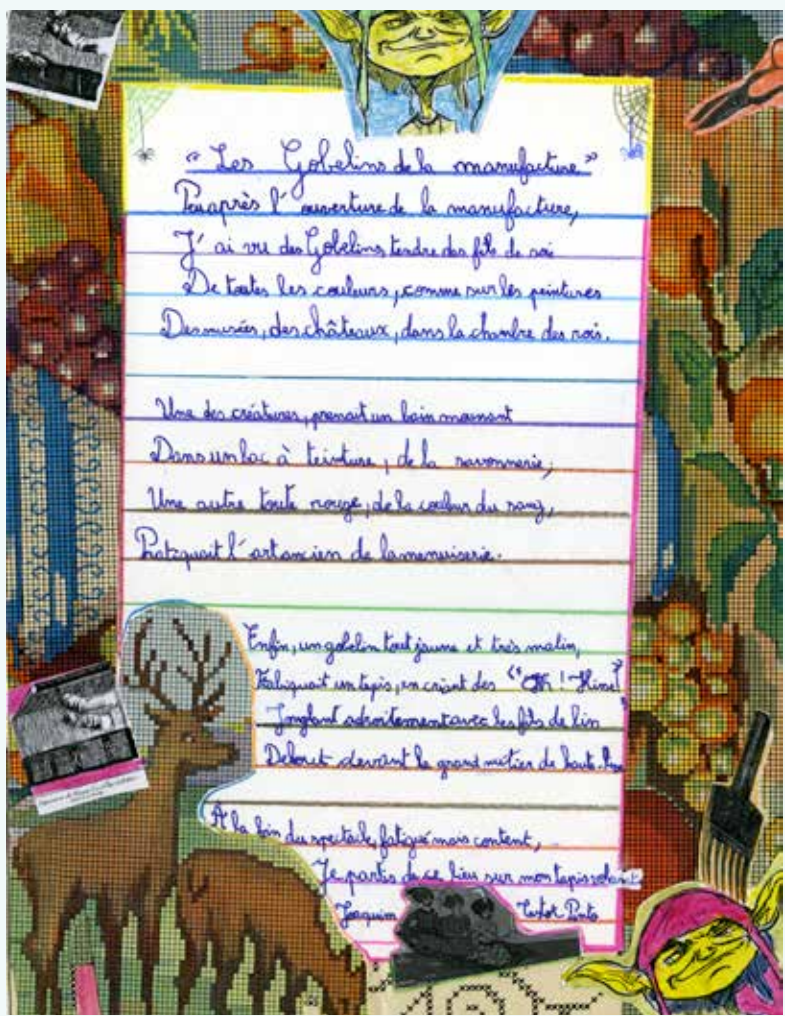 "Les Gobelins de la manufacture"
Peu après l'ouverture de la manufacture,
J'ai vu des Gobelins, tendre des fils de soie
De toutes les couleurs, comme sur les peintures
Des musées, des châteaux, dans la chambre des rois.
Une des créatures, prenait un bain moussant
Dans un bac à teinture, de la savonnerie,
Une autre toute rouge, de la couleur du sang,
Pratiquait l'art ancien de la menuiserie.
Enfin, un gobelin tout jaune et très malin,
Fabriquait un tapis, en criant des "Oh ! Hisse!"
Jonglant adroitement avec les fils de lin
Debout devant le grand métier de haute-lisse
A la fin du spectacle, fatigué mais content,
Je partis de ce lieu sur mon tapis volant.
Joaquim Pinto